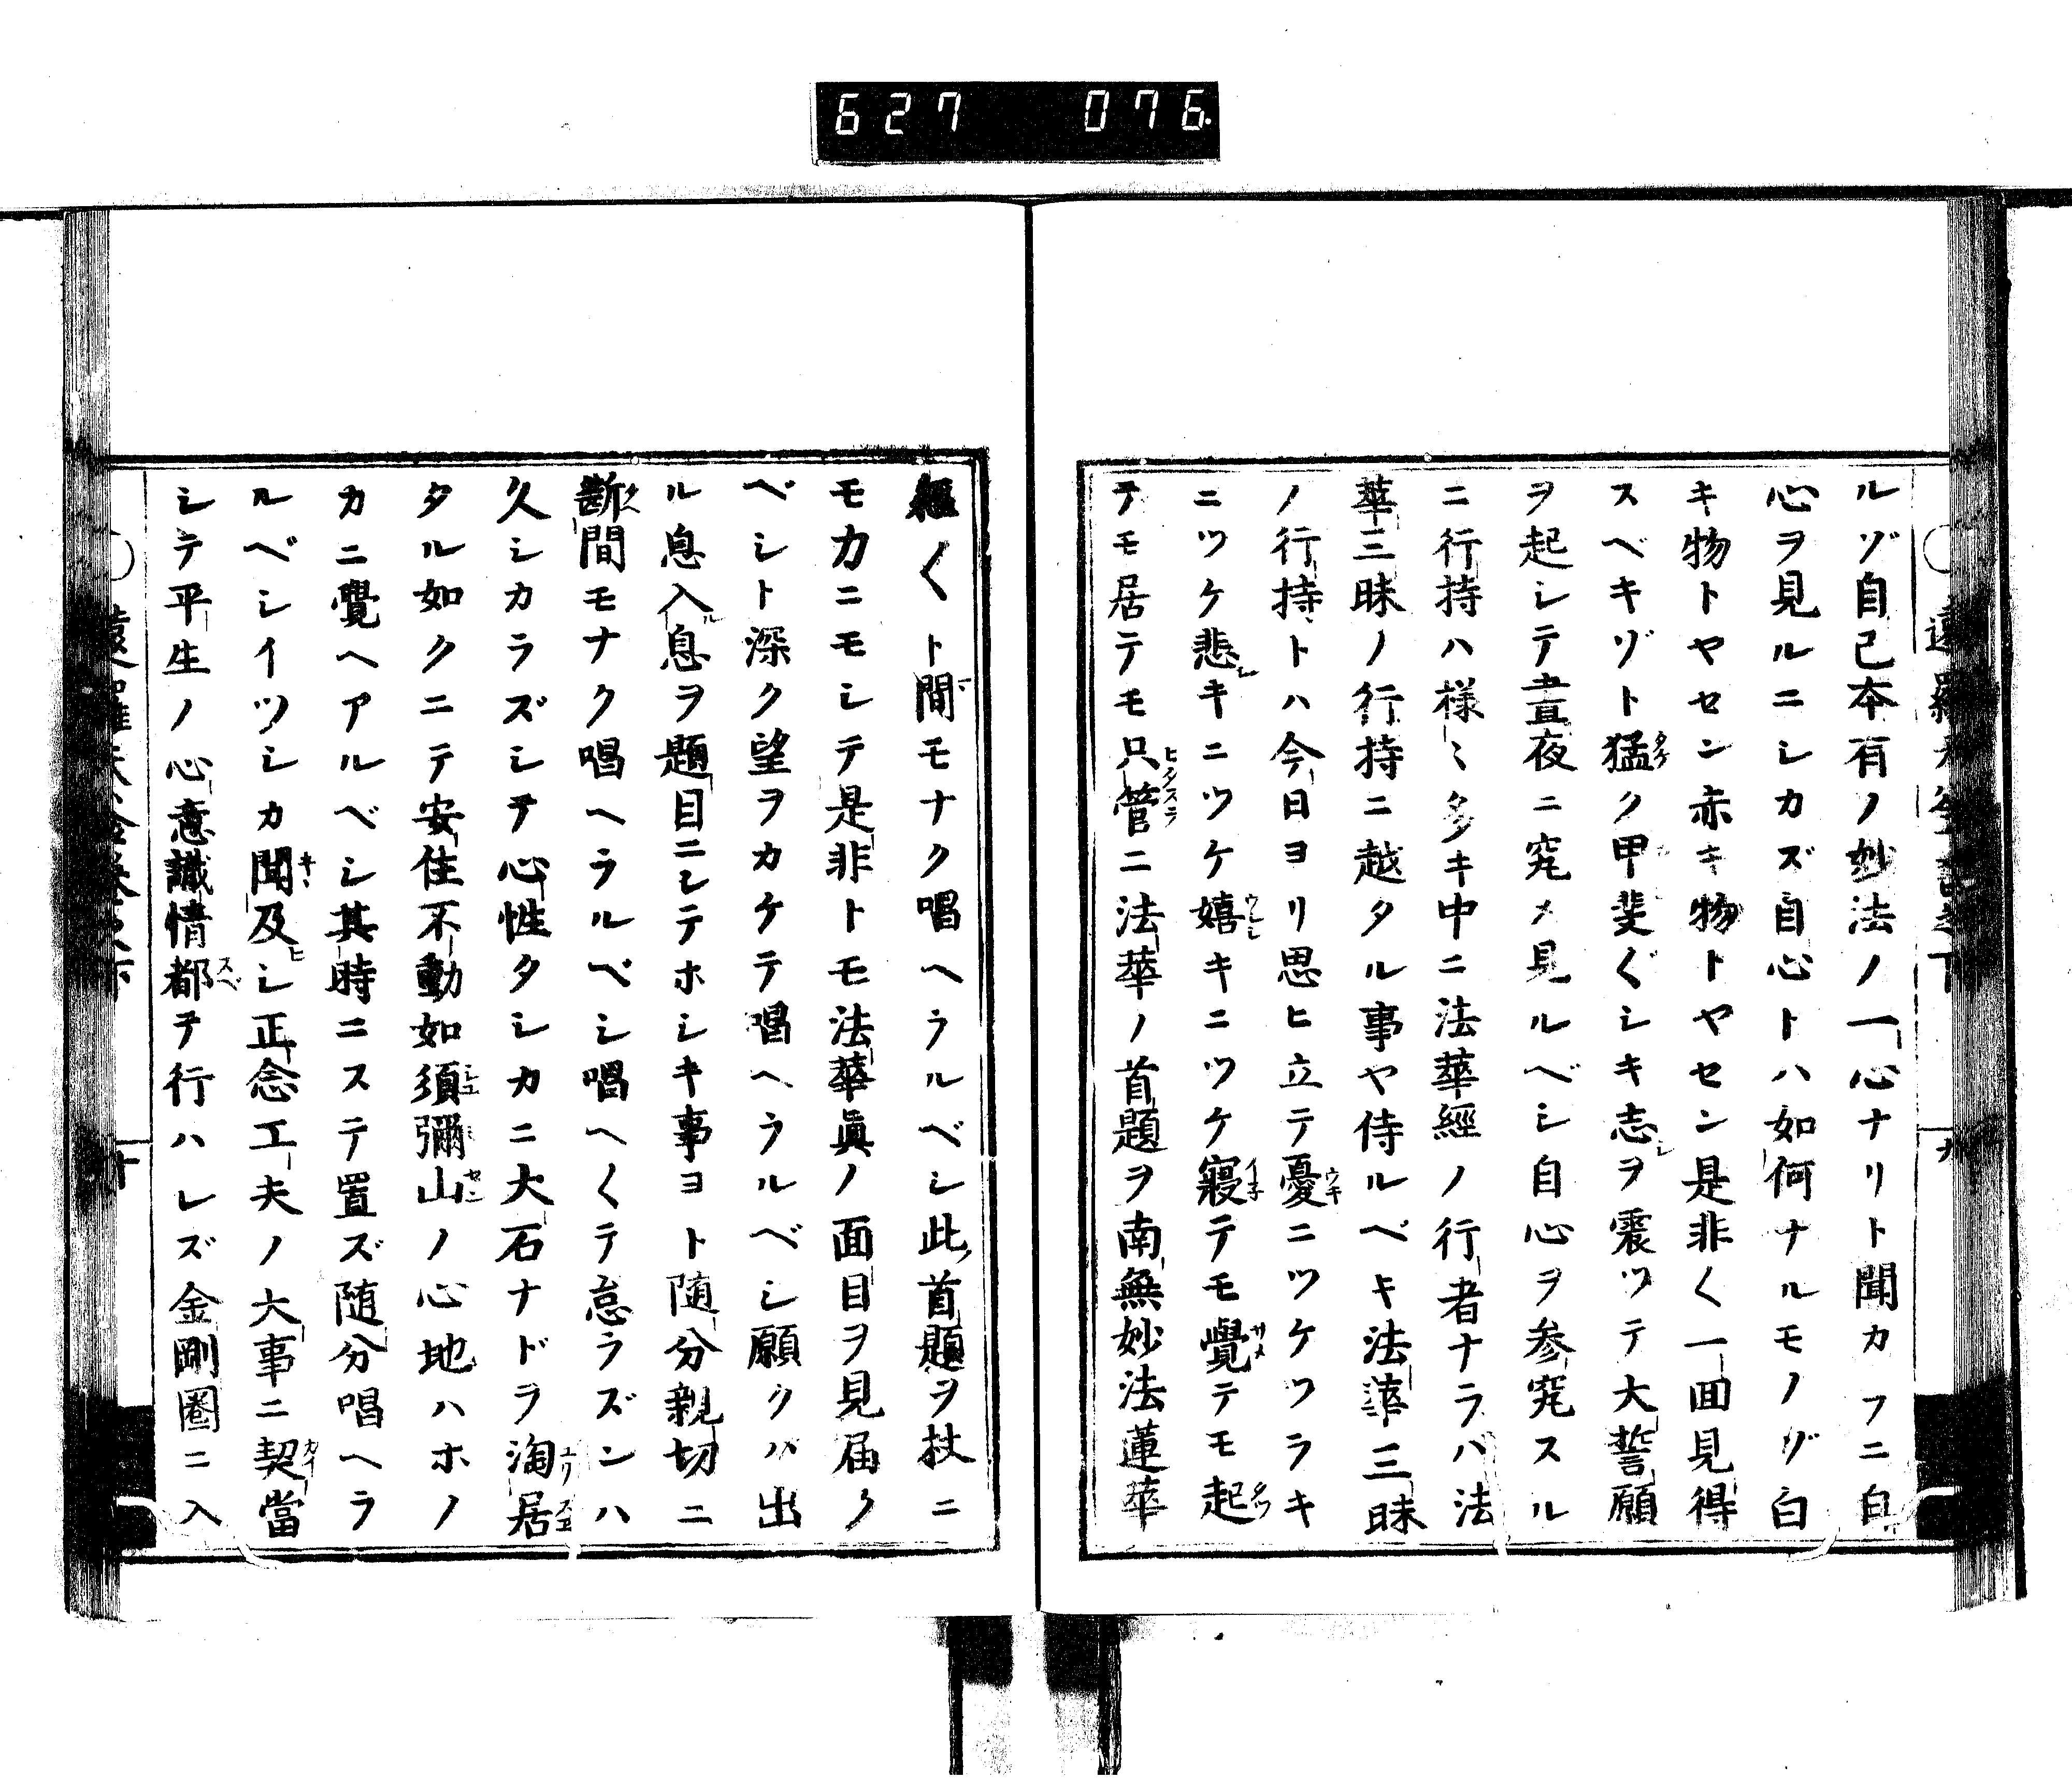 627 076
ルゾ自己本有ノ妙法ノ一心ナリト聞カフニ自
心ヲ見ルニシカズ自心トハ如何ナルモノゾ白
キ物トヤセン赤キ物トヤセン是非〱一回見得
スベキゾト猛ク甲斐〲シキ志ヲ震ツテ大誓願
ヲ起シテ晝夜ニ究メ見ルベシ自心ヲ参究スル
ニ行持ハ様〻多キ中ニ法華經ノ行者ナラバ法
華三昧ノ行持ニ越タル事ヤ侍ルベキ法華三昧
ノ行持トハ今日ヨリ思ヒ立テ憂ニツケツラキ
ニツケ悲キニツケ嬉キニツケ寢テモ覺テモ起
テモ居テモ只管ニ法華ノ首題ヲ南無妙法蓮華
經〱ト間モナク唱ヘラルベシ此首題ヲ杖ニ
モ力ニモシテ是非トモ法華眞ノ面目ヲ見届ク
ベシト深ク望ヲカケテ唱ヘラルベシ願クハ出
ル息入息ヲ題目ニシテホシキ事ヨト随分親切ニ
斷間モナク唱ヘラルベシ唱ヘ〱テ怠ラズンハ
久シカラズシテ心性タシカニ大石ナドヲ淘居
タル如クニテ安住不動如須彌山ノ心地ハホノ
カニ覺ヘアルベシ其時ニステ置ズ随分唱ヘラ
ルベシイツシカ聞及ヒシ正念工夫ノ大事ニ契當
シテ平生ノ心意識情都テ行ハレズ金剛圏ニ入